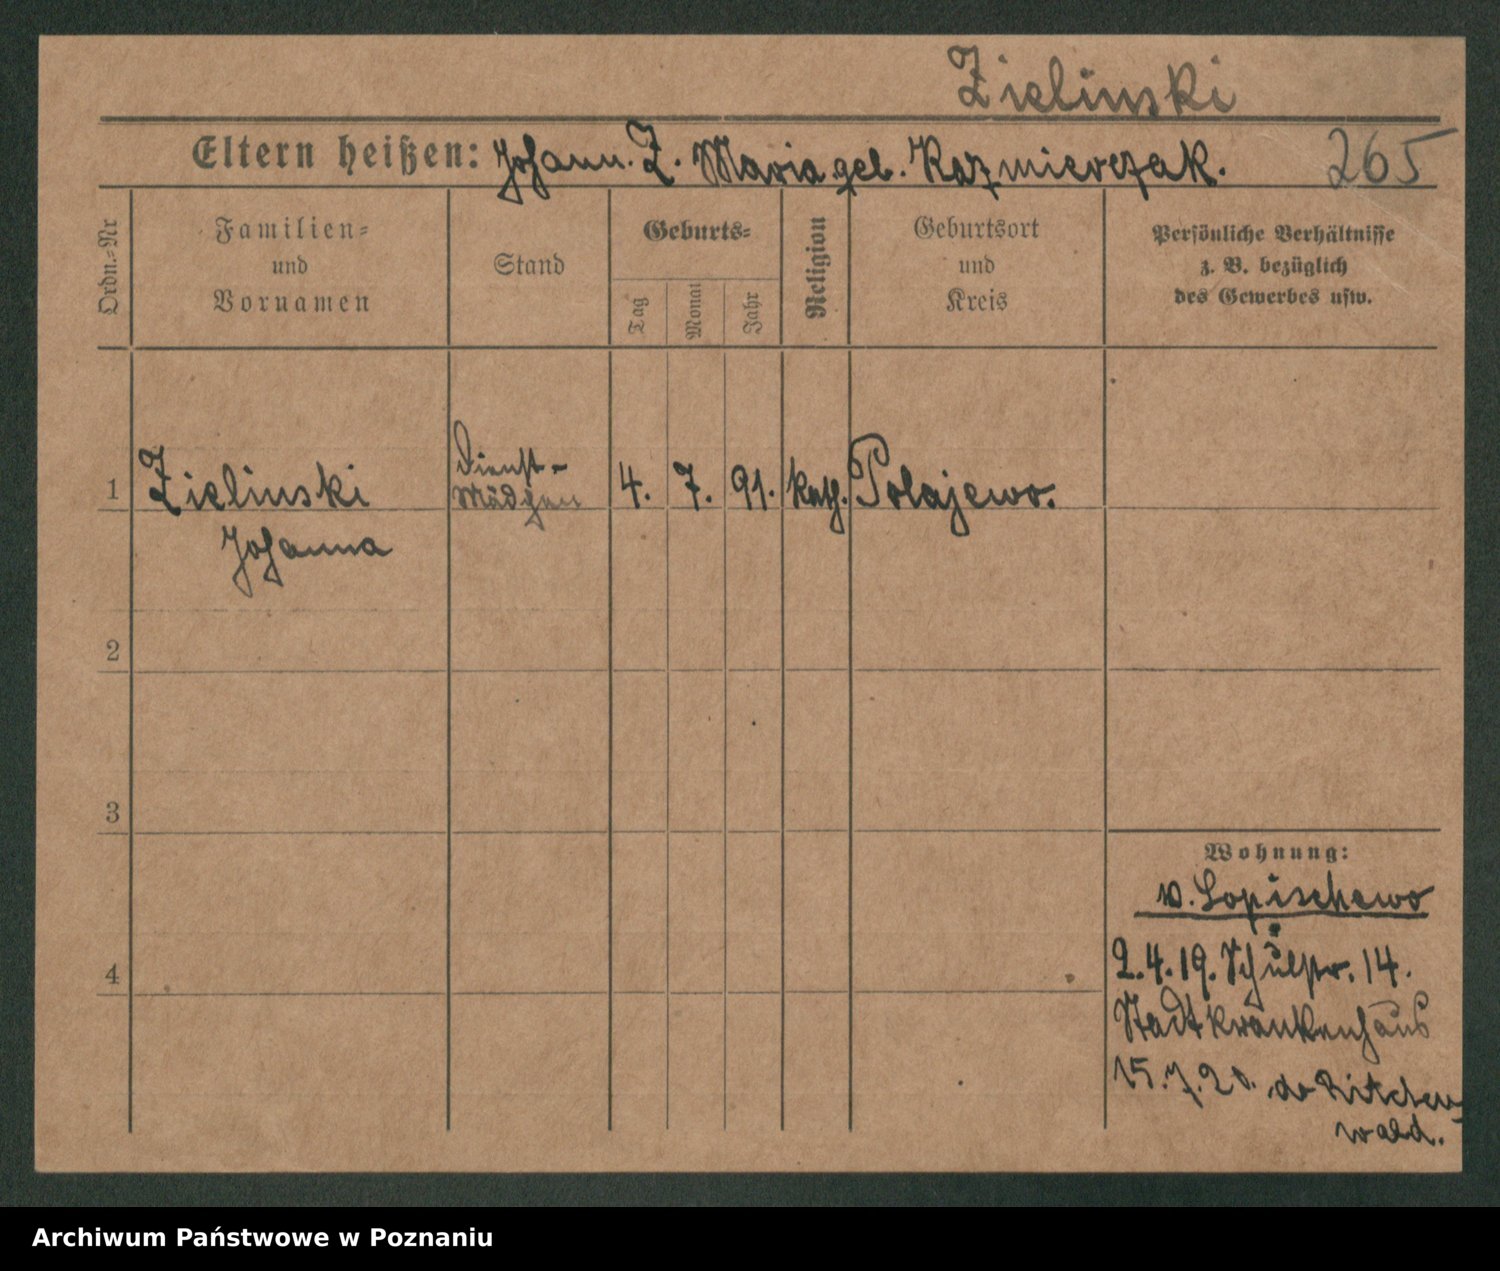 Zielinski
Eltern heißen: Johann Z. Maria geb. Kazmierczak.
265
Ordn.-Nr
Familien-
und
Vornamen
Stand
Geburts-
Tag
Monat
Jahr
Religion
Geburtsort
und
Kreis
Persönliche Verhältnisse
z. B. bezüglich
des Gewerbes usw.
1
Zielinski
Johanna
Dienst-
Mädchen
4. 7. 91. kath. Polajewo.
2
3
4
Wohnung:
v. Lopischewo
2.4.19. Schulstr. 14.
Stadtkrankenhaus
15.7.20.
wald.
Archiwum Państwowe w Poznaniu